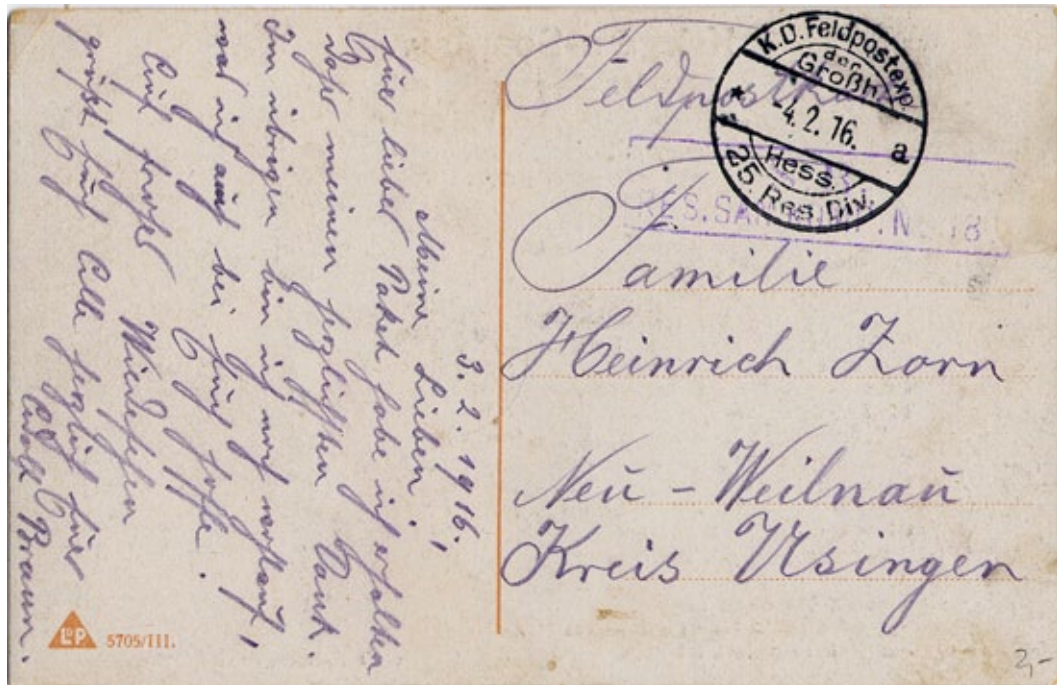 Feldpostkarte
K.D. Feldpostexp.
der
Großh.
* -4.2.16. a
Hess.
25. Res. Div.
RES. SAN. KOMP. No. 18
Familie
Heinrich Zorn
Neu-Weilnau
Kreis Usingen
3. 2. 1916.
Meine Lieben!
Euer liebes Paket habe ich erhalten
meinen herzlichsten Dank.
Im übrigen bin ich noch wohlauf,
was ich auch bei Euch hoffe.
Auf frohes Wiedersehen
grüßt Euch Alle herzlich Euer
Braun.
L&P 5705/III.
2,-